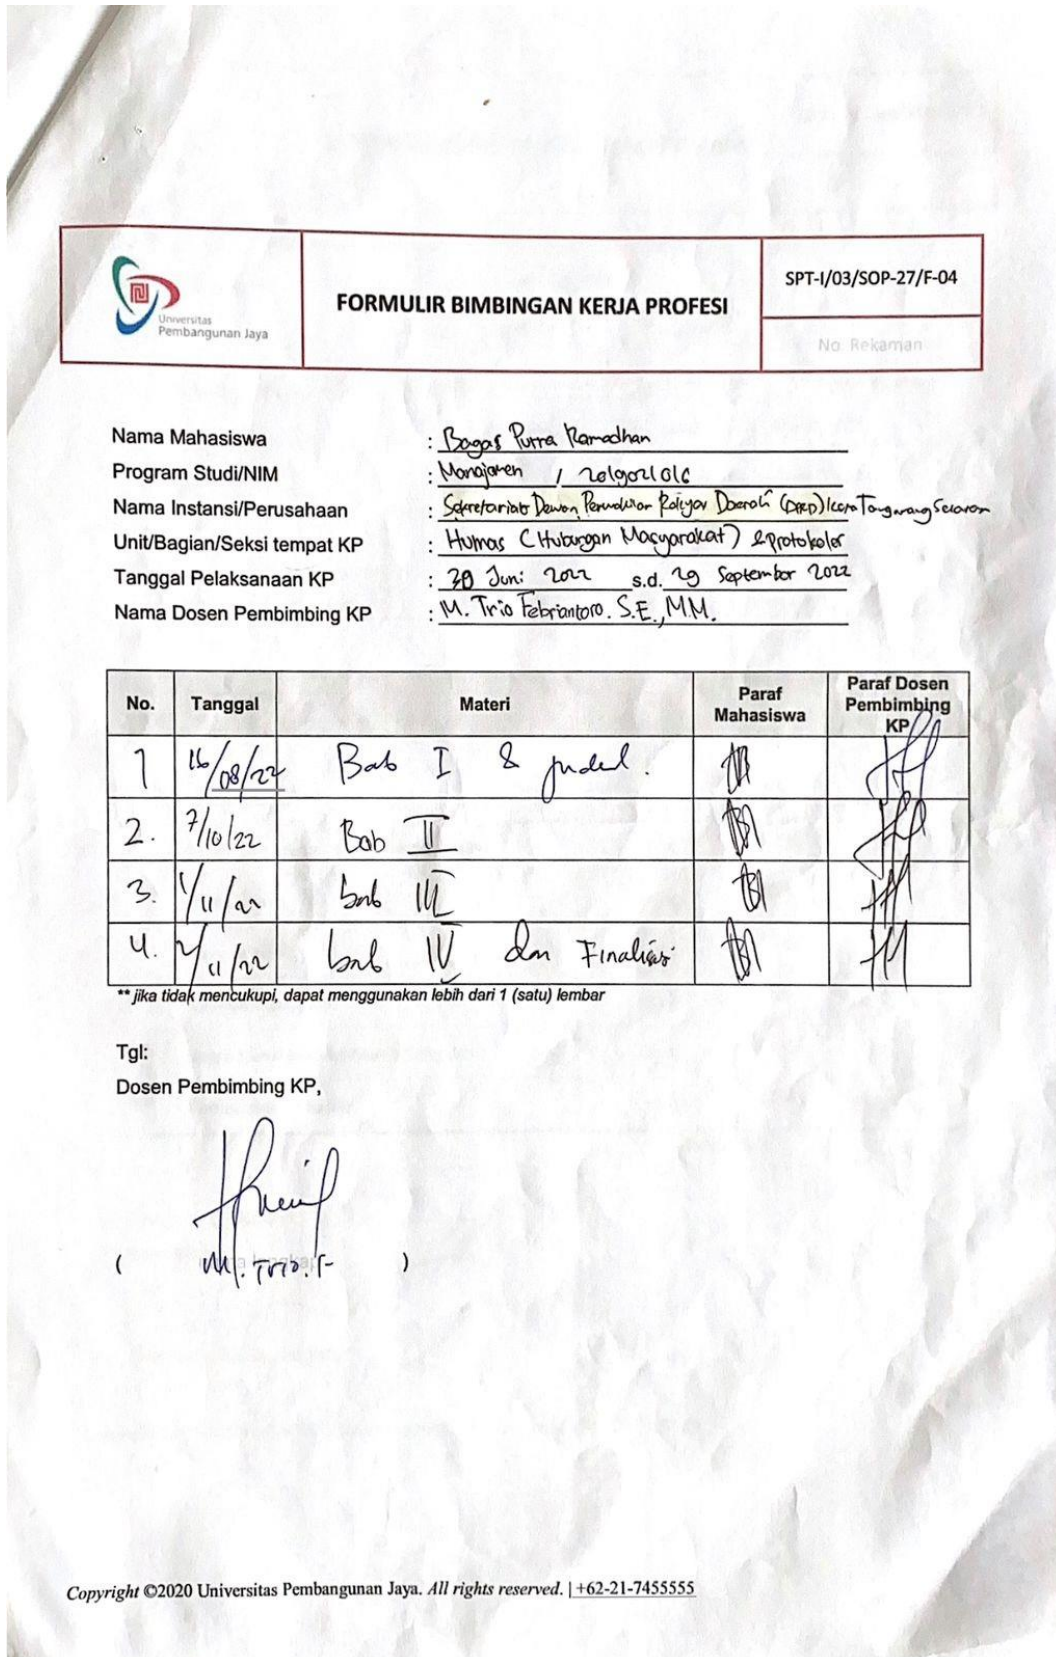 Universitas
Pembangunan Jaya
FORMULIR BIMBINGAN KERJA PROFESI
SPT-I/03/SOP-27/F-04
No. Rekaman
Nama Mahasiswa : Bagas Putra Ramadhan
Program Studi/NIM : Manajemen / 2019021016
Nama Instansi/Perusahaan : Sekretariat Dewan Perwakilan Rakyat Daerah (DPRD) Kota Tangerang Selatan
Unit/Bagian/Seksi tempat KP : Humas (Hubungan Masyarakat) & Protokoler
Tanggal Pelaksanaan KP : 30 Juni 2022 s.d. 29 September 2022
Nama Dosen Pembimbing KP : M. Trio Febriantoro. S.E., MM.
No. Tanggal Materi Paraf Mahasiswa Paraf Dosen Pembimbing KP
1 16/08/22 Bab I & judul.
2. 7/10/22 Bab II
3. 1/11/22 bab III
4. /11/22 bab IV dan Finalisasi
** jika tidak mencukupi, dapat menggunakan lebih dari 1 (satu) lembar
Tgl:
Dosen Pembimbing KP,
( M. Trio. F )
Copyright ©2020 Universitas Pembangunan Jaya. All rights reserved. | +62-21-7455555